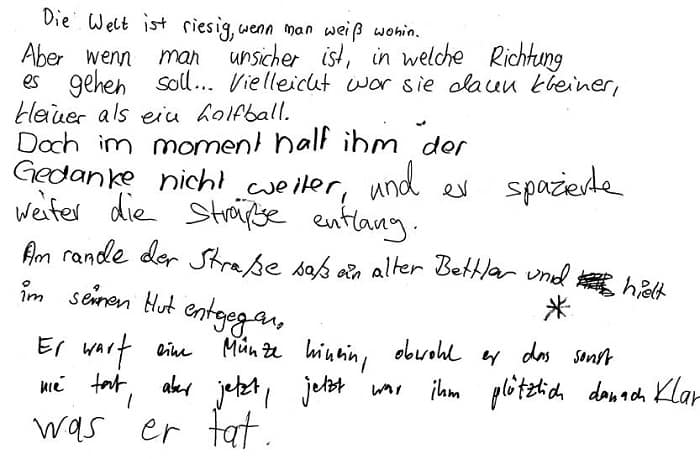 Die Welt ist riesig, wenn man weiß wohin.
Aber wenn man unsicher ist, in welche Richtung
es gehen soll... Vielleicht war sie dann kleiner,
kleiner als ein Golfball.
Doch im moment half ihm der
Gedanke nicht weiter, und er spazierte
weiter die Straße entlang.
Am rande der Straße saß ein alter Bettler und hielt
im seinen Hut entgegen.
*
Er warf eine Münze hinein, obwohl er das sonst
nie tat, aber jetzt, jetzt war ihm plötzlich danach Klar
was er tat.